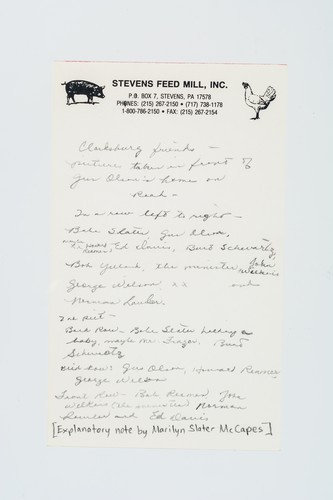 STEVENS FEED MILL, INC.
P.O. BOX 7, STEVENS, PA 17578
PHONES: (215) 267-2150 • (717) 738-1178
1-800-786-2150 • FAX: (215) 267-2154
Clarksburg friends –
picture taken in front of
Gus Olson's home on
Road –
In a row left to right –
Babe Slater Gus Olson,
maybe Howard Reamer Ed Davis, Burt Schwartz,
Bob, the minister John Watkins
George Wilson, xx and
Norman Lawler.
Back Row – Babe Slater holding a
baby, maybe Mr. Burt
Schwartz
row: Gus Olson, Howard Reamer
George Wilson
Front Row – Bob Reamer John
Watkins (the minister) Norman
Lawler and Ed Davis
[Explanatory note by Marilyn Slater McCapes]